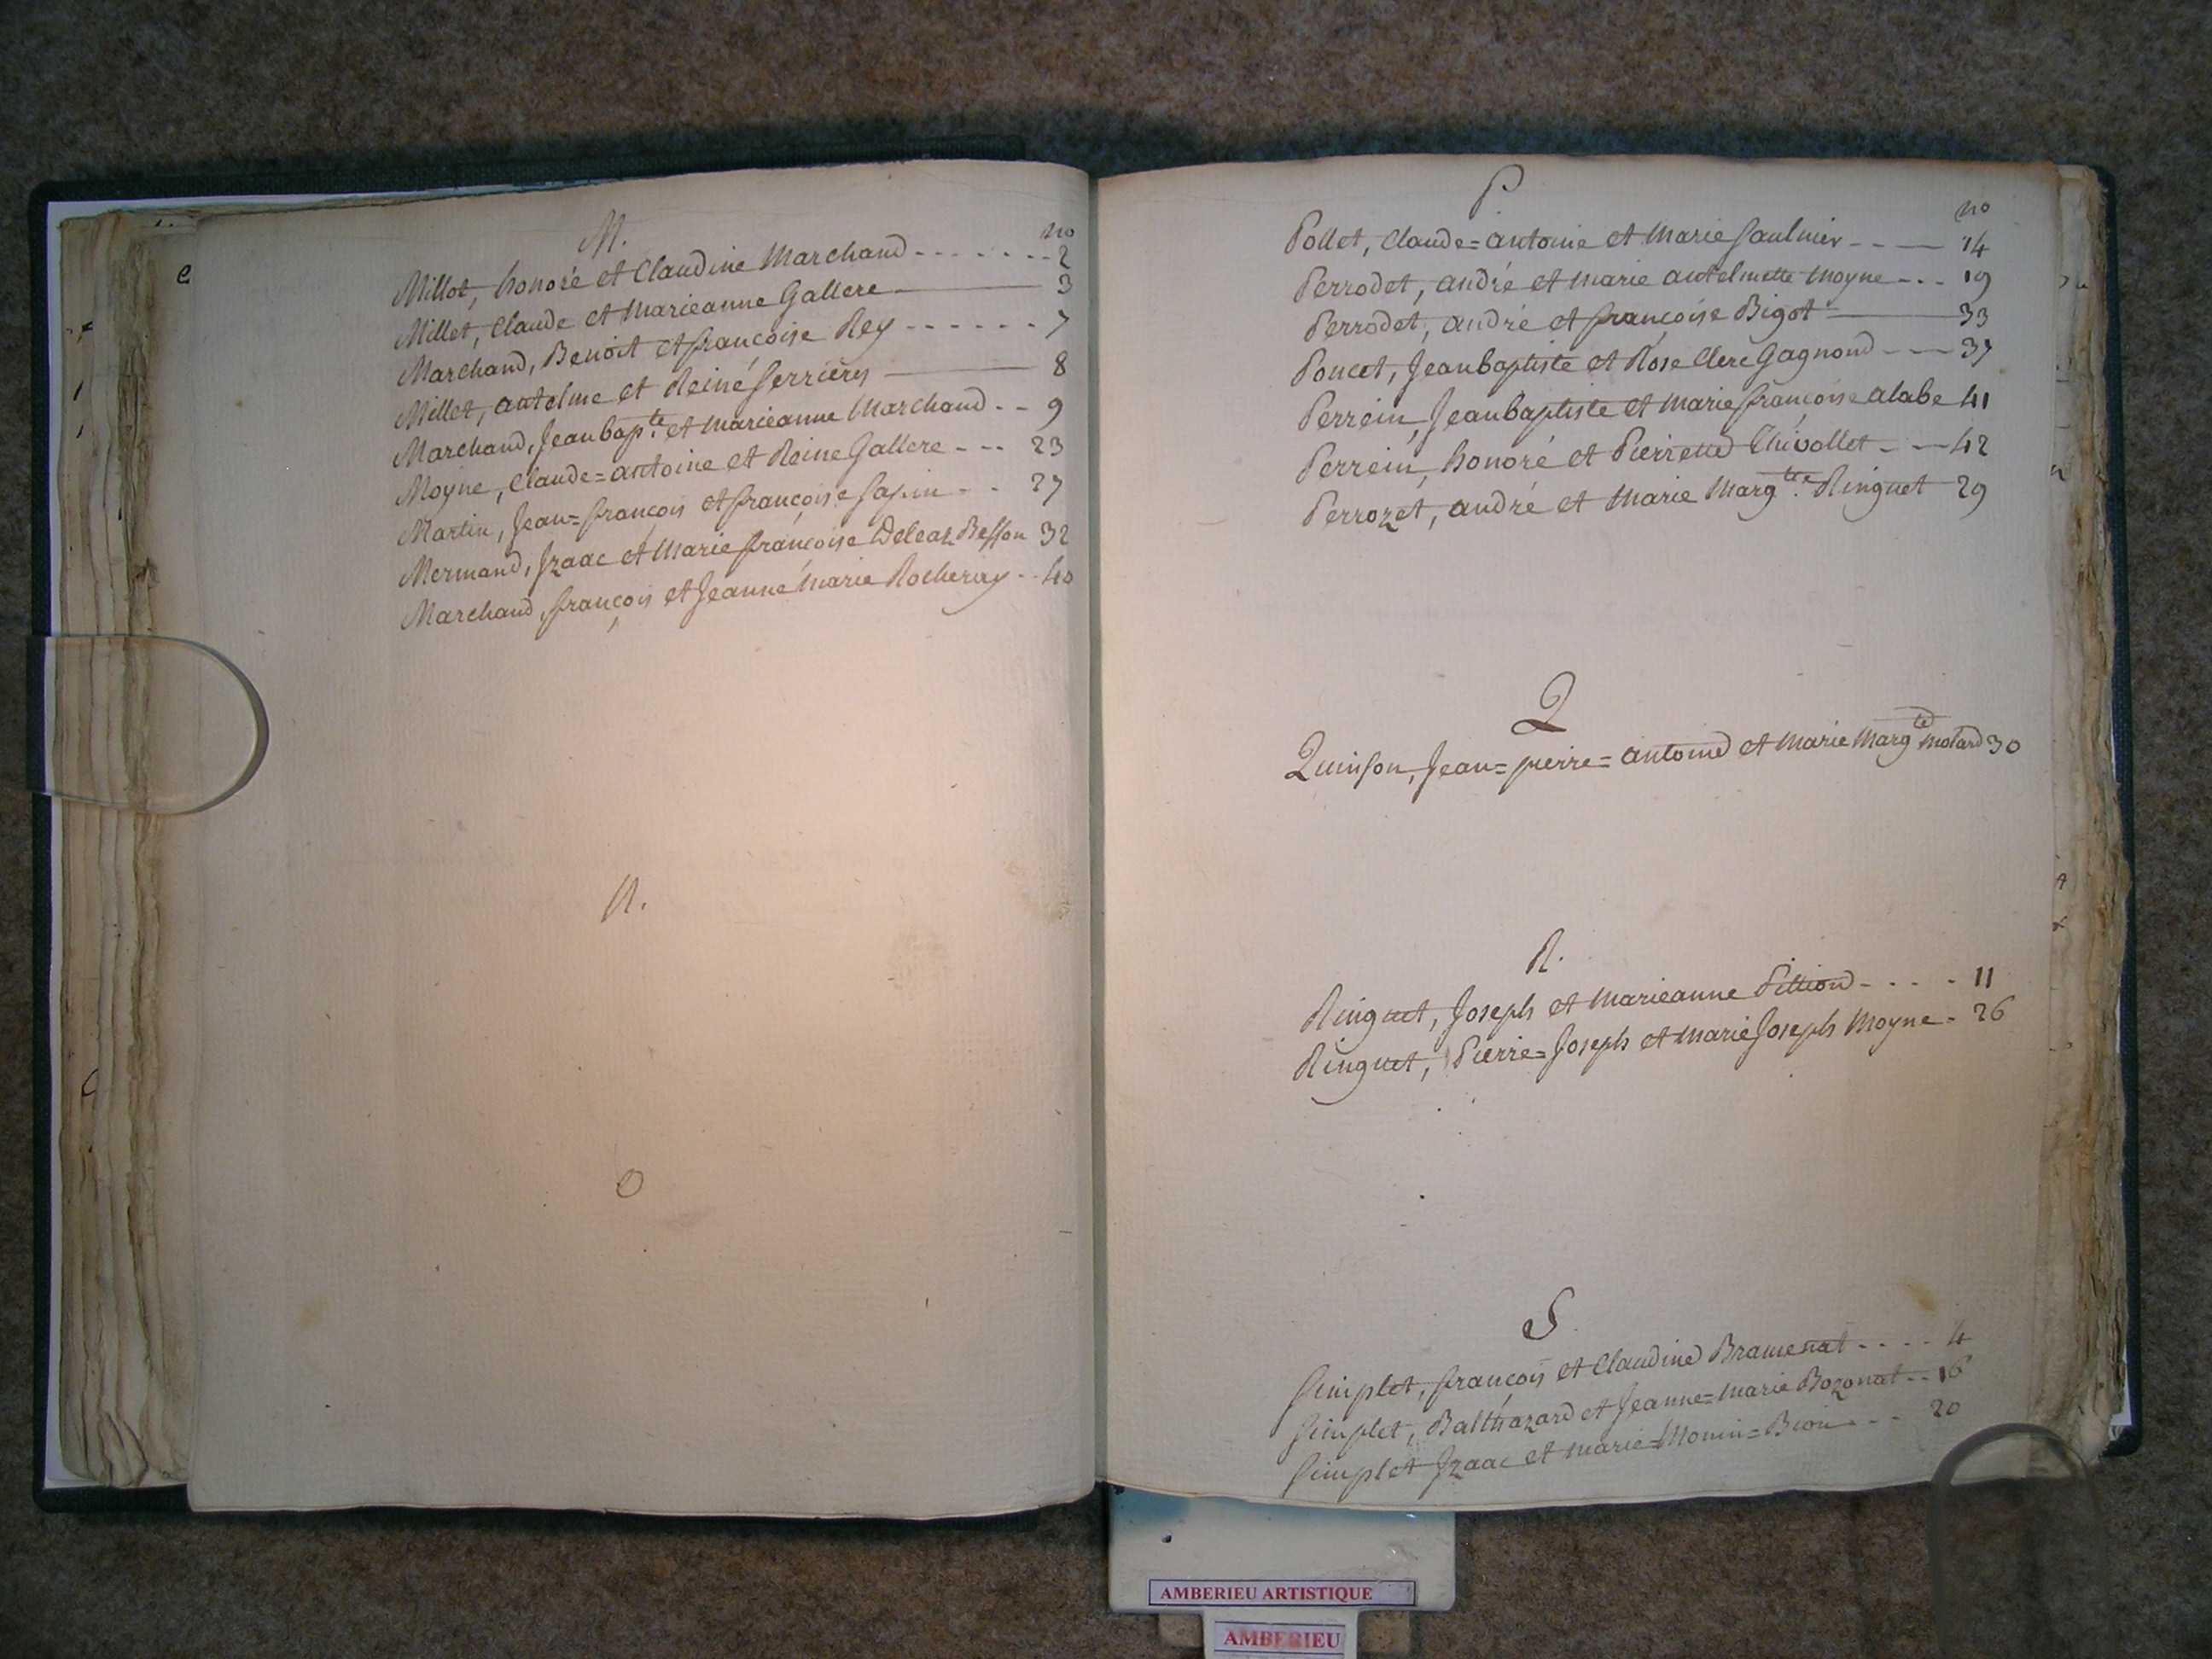 M.
no
Millot, honoré et Claudine Marchand - - - - - - - 2
Millet, Claude et Marieanne Gallere —— 3
Marchand, Benoit et françoise Rey - - - - - - 7
Millet, antelme et Reine Serrieres —— 8
Marchand, Jeanbap.te et marieanne Marchand - - 9
Moyne, Claude=antoine et Reine Gallere - - - 23
Martin, Jean=françois et françoise - - 27
Mermand, Izaac et Marie françoise Deleaz Besson 32
Marchand, françois et Jeanne Marie Rocheray - - 40
N.
O
P
no
Pollet, Claude=antoine et Marie Saulnier - - — 14
Perrodet, andré et marie antelmette Moyne - - - 19
Perrodet, andré et françoise Bigot —— 33
Poncet, Jeanbaptiste et Rose Clere Gagnond - - — 37
Perrein, Jeanbaptiste et Marie françoise alabe 41
Perrein, honoré et Pierrette Chivollet - - — 42
Perrozet, andré et Marie Marg.te Ringuet 29
Q
Quinson, Jean=pierre=antoine et Marie Marg.te Motard 30
R.
Ringuet, Joseph et Marieanne Pittion - - - - 11
Ringuet, Pierre=Joseph et Marie Joseph Moyne - 26
S
Simplet, françois et Claudine Bramenat - - - - 4
Simplet, Balthazard et Jeanne=Marie Bozonat - - 16
Simplet Izaac et marie=Monin=Bion - - - 20
AMBERIEU ARTISTIQUE
AMBERIEU